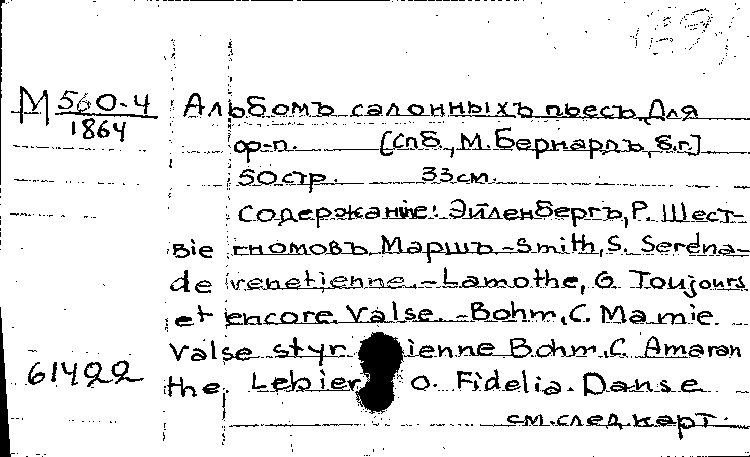 М 560-4 Альбомъ салонныхъ пьесъ для
1864
ф-п. [Спб., М. Бернардъ, б.г.]
50 стр. 33 см.
Содержание: Эйленбергъ, Р. Шест-
вiе гномовъ Маршъ-Smith, S. Serena-
de venetienne.-Lamothe, G Toujours
et encore. Valse.-Bohm, C. Mamie.
Valse styrienne Bohm, C. Amaran
61422 the, Lebier O. Fidelia. Danse
см. след. карт.